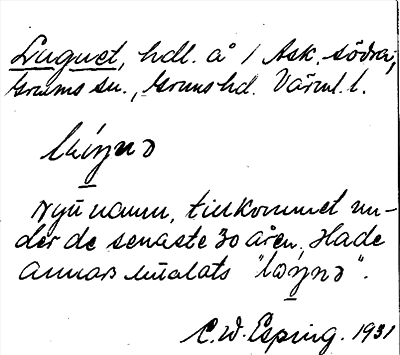 Lugnet, hdl. å 1 Ask. södra,
Grums sn., Grums hd. Värml. l.
Nytt namn, tillkommet un-
der de senaste 30 åren. Hade
annars kallats "
C.W. Esping. 1931